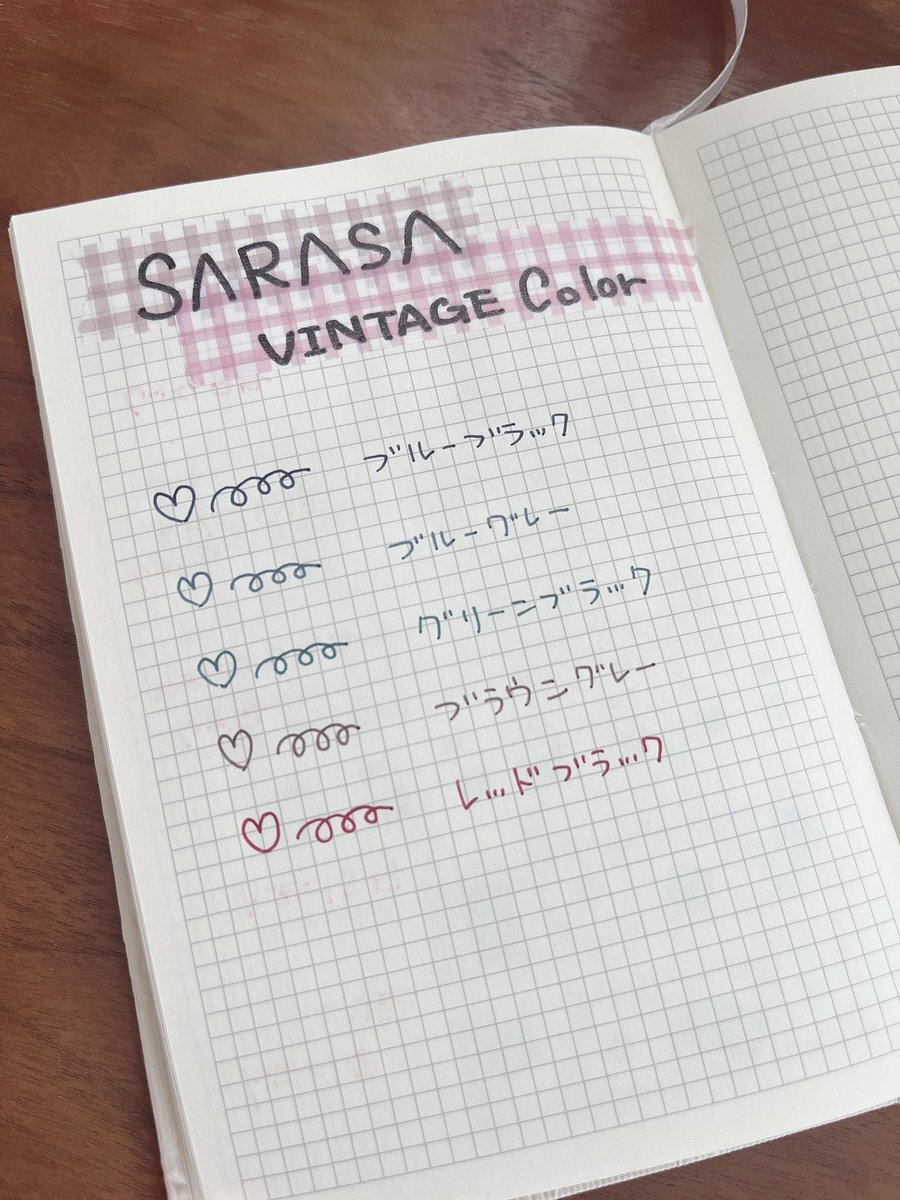 SARASA
VINTAGE Color
ブルーブラック
ブルーグレー
グリーンブラック
ブラウングレー
レッドブラック